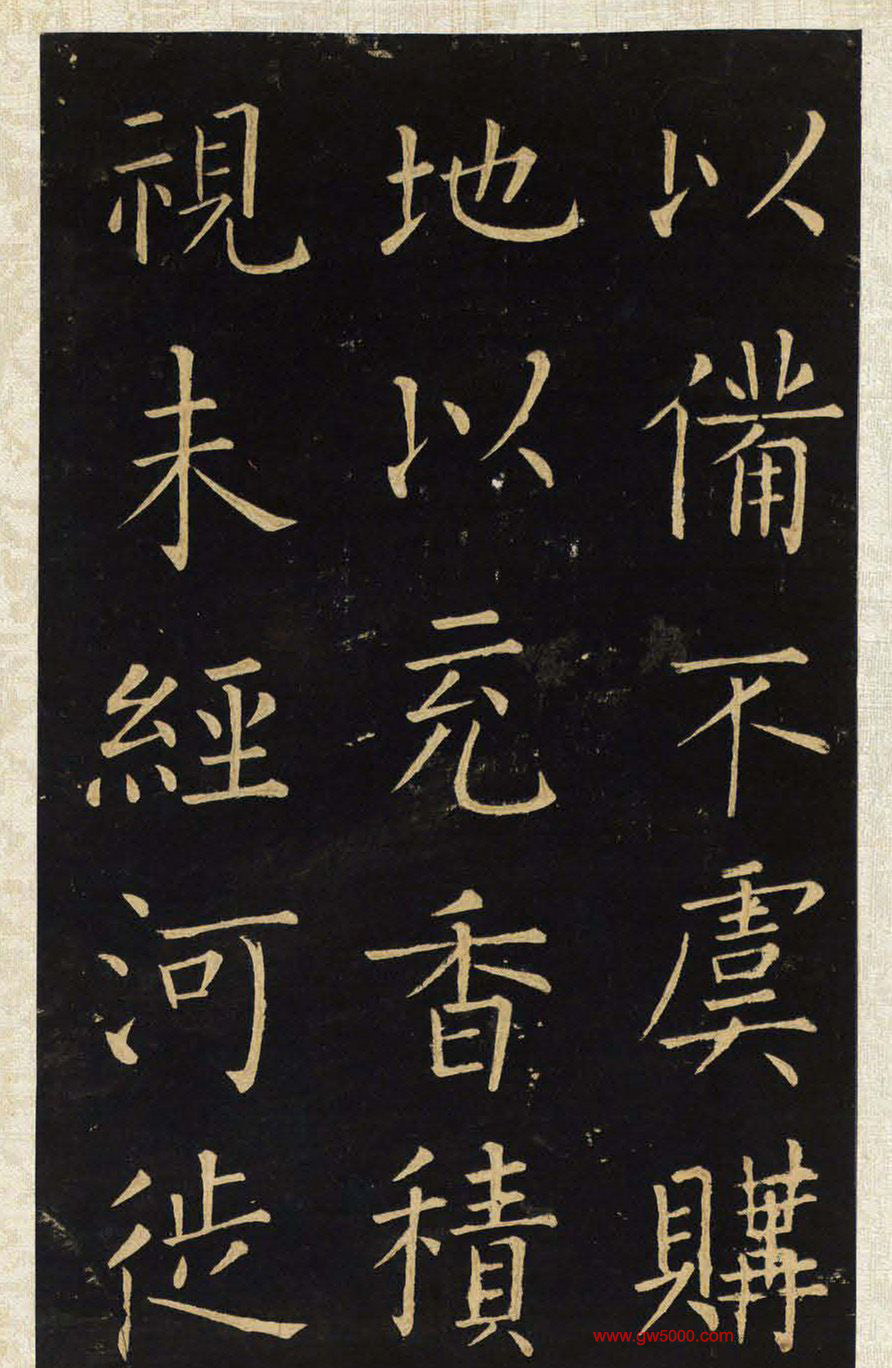 以備不虞購
地以充香積
視未經河徙
www.gw5000.com